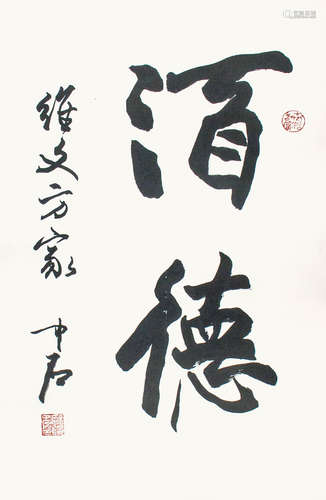 酒德
維文方家
中石